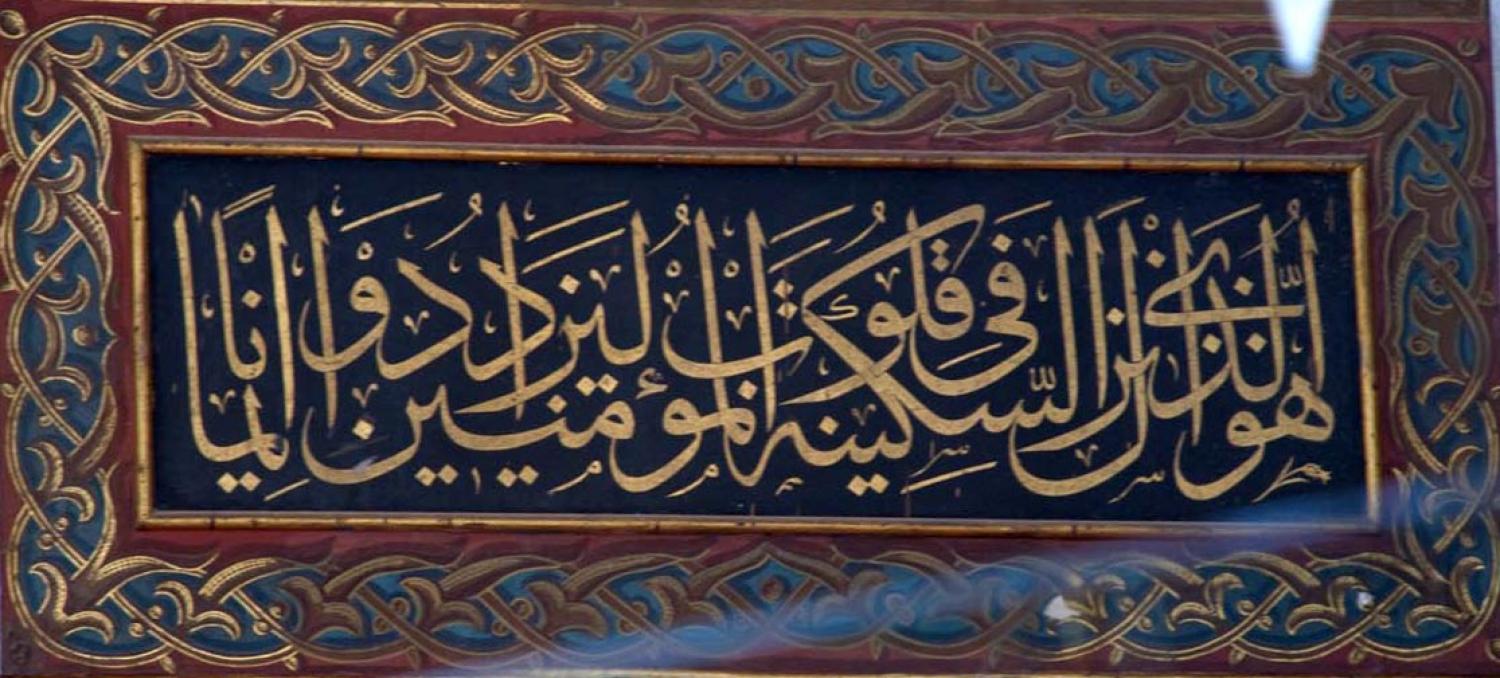 هُوَ الَّذِي أَنْزَلَ السَّكِينَةَ فِي قُلُوبِ الْمُؤْمِنِينَ لِيَزْدَادُوا إِيمَانًا